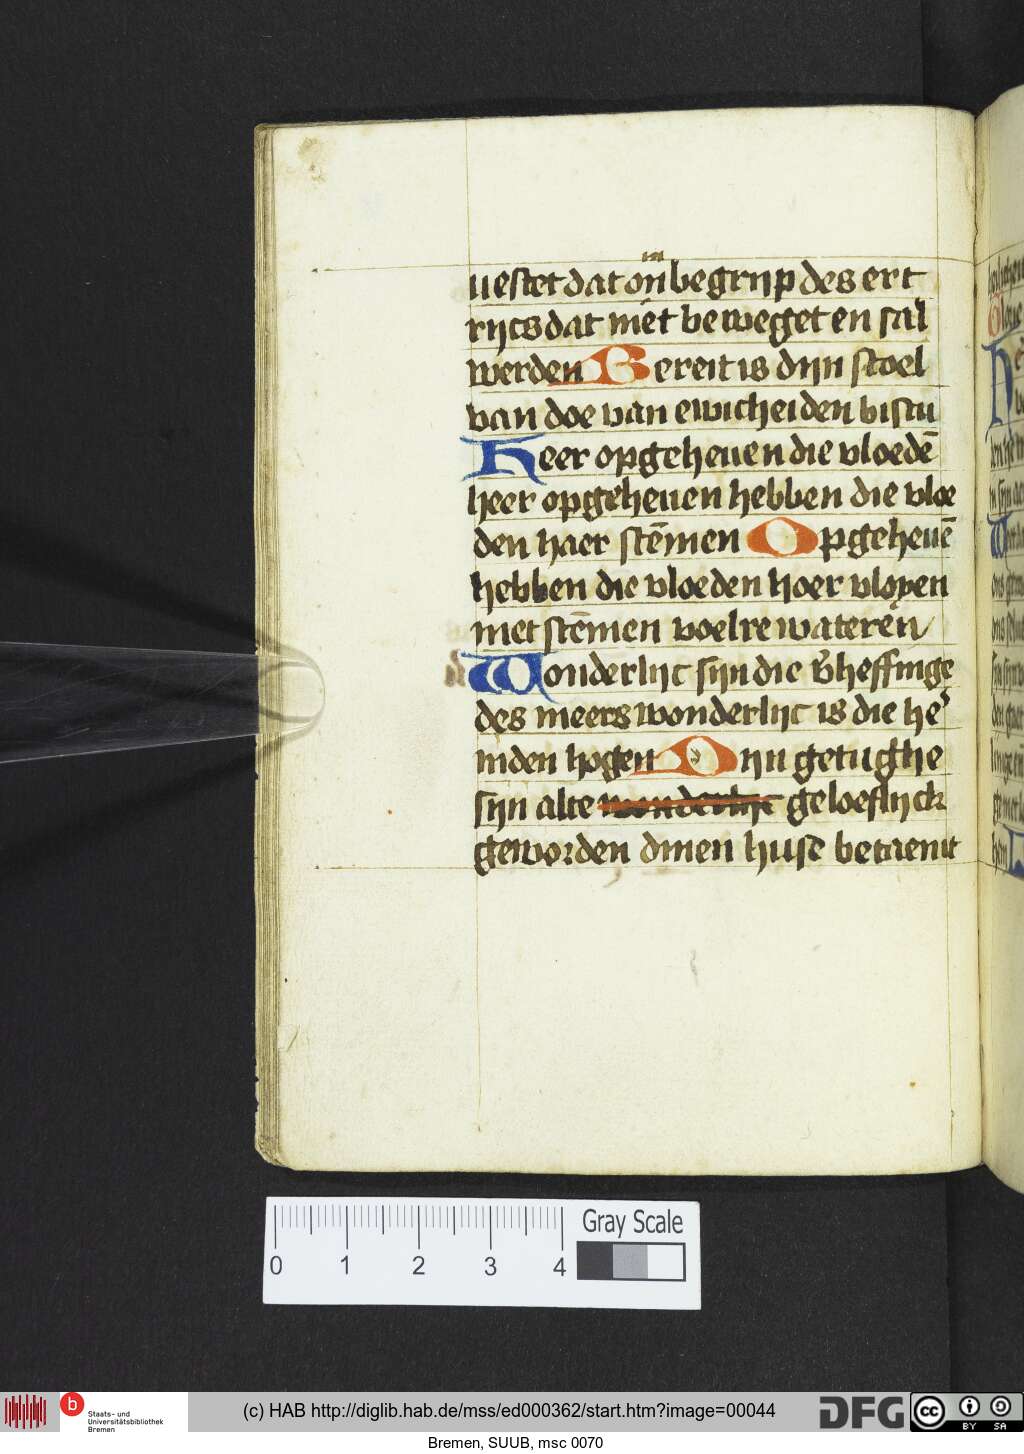 in
uestet dat om begrijp des ert
rijcs dat niet beweget en sal
werden Bereit is dijn stoel
van doe van ewicheiden bistu
Heer opgeheuen die vloedē
heer opgeheuen hebben die vloe
den haer stēmen Opgeheuē
hebben die vloeden hoer vloyen
met stēmen voelre wateren
Wonderlijc sijn die v̄heffinge
des meers wonderlijc is die he'
in den hogen Dijn getughe
sijn alte wonderlijc geloeflijck
geworden dinen huse betaemt
0 1 2 3 4 Gray Scale
b Staats- und Universitätsbibliothek Bremen
(c) HAB http://diglib.hab.de/mss/ed000362/start.htm?image=00044
DFG cc BY SA
Bremen, SUUB, msc 0070